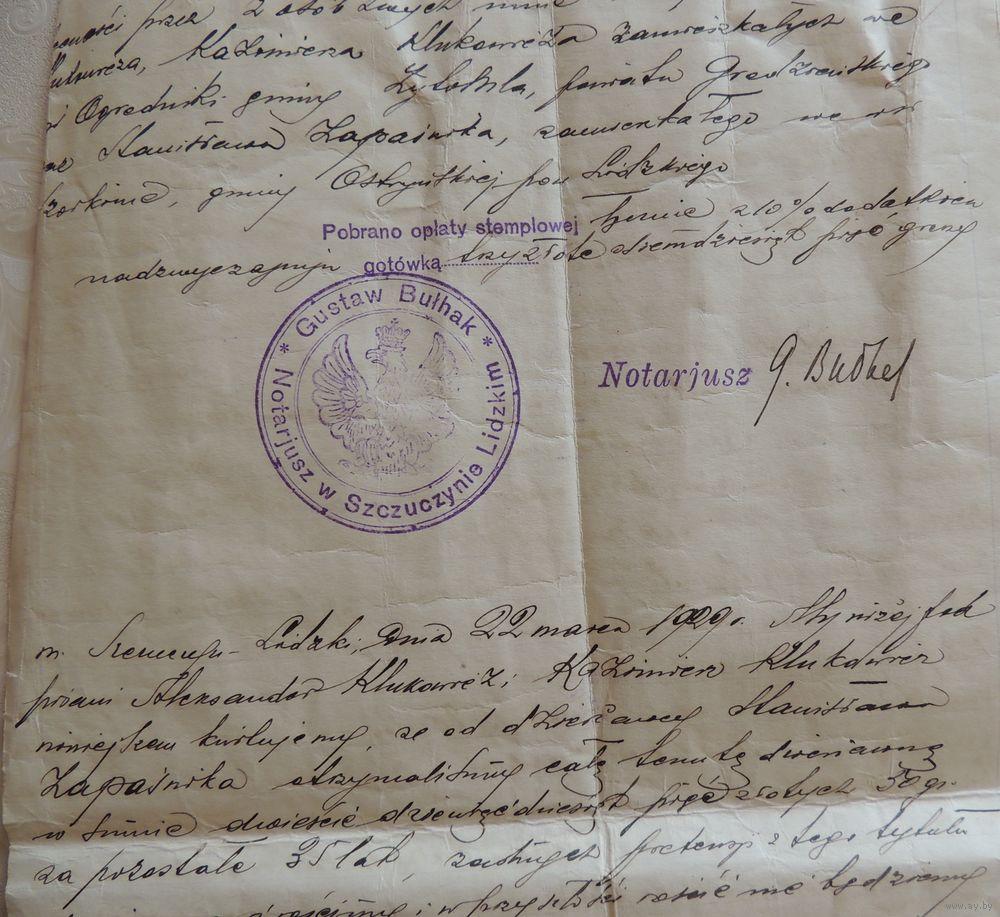 przez 2 osób
Kazimierza Klukowicza zamieszkałych we
wsi Ogrodniki gminy Żytomla, powiatu Grodzieńskiego
oraz Stanisława Zapaśnika, zamieszkałego we wsi
gminy Ostryńskiej pow Lidzkiego
Pobrano opłaty stemplowej łącznie z 10% dodatkiem
nadzwyczajnym gotówką trzy złote siedemdziesiąt pięć groszy
* Gustaw Bułhak *
Notarjusz w Szczuczynie Lidzkim
Notarjusz G. Bułhak
m. Szczuczyn-Lidzki, dnia 22 marca 1929 r. My niżej pod
pisani Aleksander Klukowicz i Kazimierz Klukowicz
niniejszem kwitujemy, że od dzierżawcy Stanisława
Zapaśnika otrzymaliśmy całą tenutę dzierżawną
w sumie dwieście dziewięćdziesiąt pięć złotych 50 gr.
za pozostałe 35 lat, żadnych pretensji z tego tytułu
nie rościmy i w przyszłości rościć nie będziemy
www.ay.by